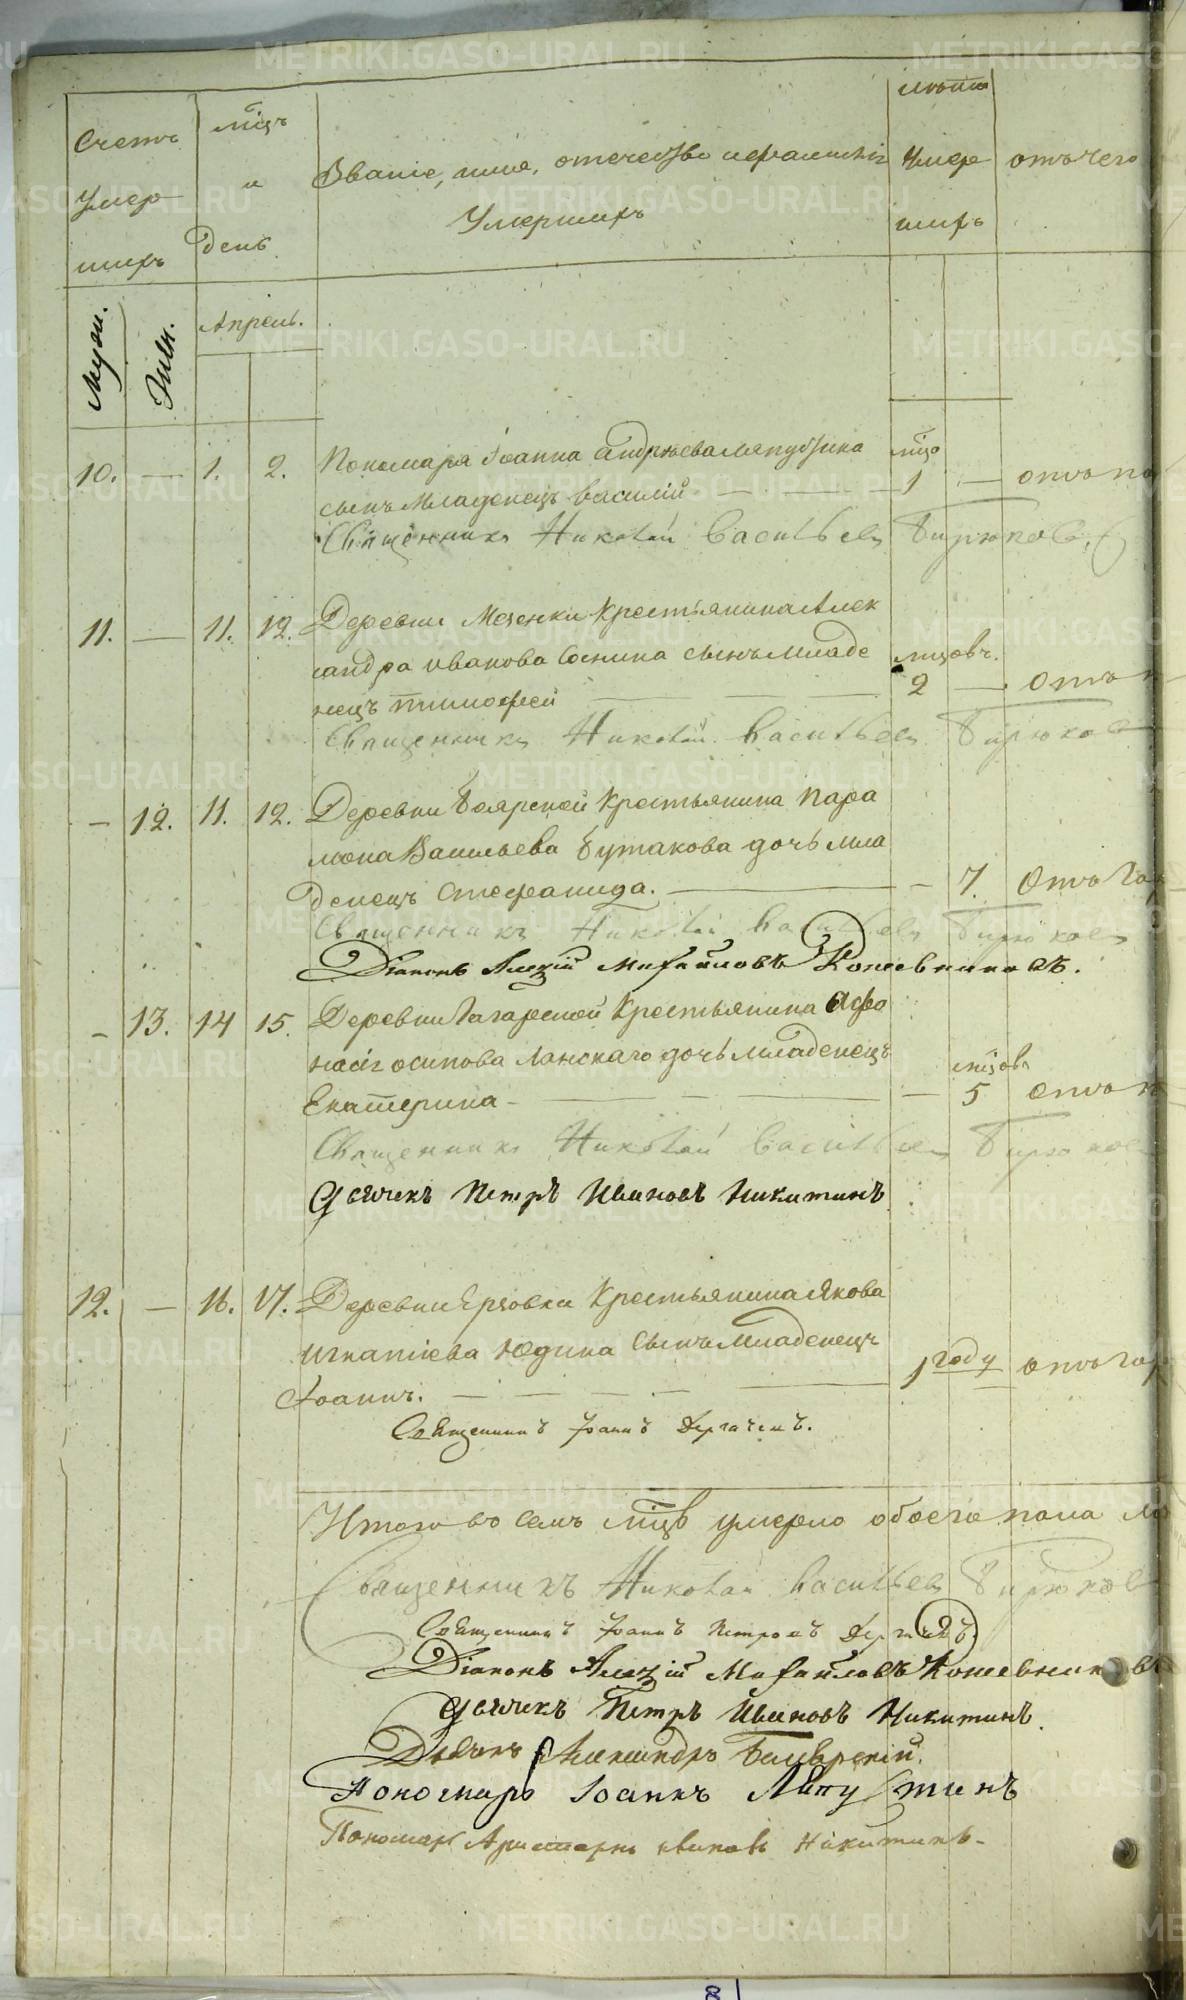 Счетъ умер шихъ
мцъ и день
Званіе, имя, отечество и фамилія Умершихъ
лѣта Умер шихъ
отъ чего
Муж.
Жен.
Апрель.
10. — 1. 2. Пономаря Іоанна Андрѣева Ляпустина мцъ
сынъ младенецъ Василій — 1 — отъ по
Священникъ Николай Васильевъ Бирюковъ
11. — 11. 12. Деревни Мезенки Крестьянина Алек
сандра Иванова Соснина сынъ младе мцовъ.
нецъ Тимофей — 2 — отъ
Священникъ Николай Васильевъ Бирюковъ
— 12. 11. 12. Деревни Боярской Крестьянина Пара
мона Васильева Бутакова дочь мла
денецъ Стефанида. — 7. Отъ
Священникъ Николай Васильевъ Бирюковъ
Діаконъ Алексій Михайловъ Кожевниковъ.
— 13. 14 15. Деревни Гагарской Крестьянина Афо
насія Осипова Ланскаго дочь младенецъ мцовъ
Екатерина — 5 отъ
Священникъ Николай Васильевъ Бирюковъ
Дьячекъ Петръ Ивановъ Никитинъ
12. — 16. 17. Деревни Ерзовки Крестьянина Якова
Игнатіева Юдина сынъ младенецъ
Іоаннъ. — 1 году отъ гор
Священникъ Іоаннъ Дергачевъ.
Итого въ семъ мцѣ умерло обоего пола
Священникъ Николай Васильевъ Бирюковъ
Священникъ Іоаннъ Петровъ Дергачевъ.
Діаконъ Алексій Михайловъ Кожевниковъ
Дьячекъ Петръ Ивановъ Никитинъ.
Дьячекъ Александръ
Пономарь Іоаннъ Ляпустинъ
Пономарь Аристархъ Ивановъ Никитинъ
METRIKI.GASO-URAL.RU